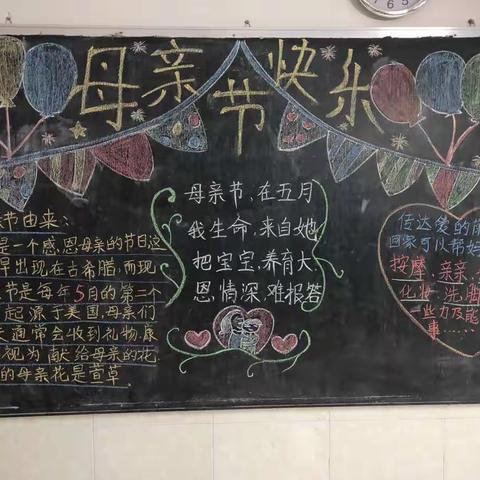 母亲节快乐
节由来:
是一个感恩母亲的节日这
早出现在古希腊,而现
节是每年5月的第二个
起源于美国,母亲们
通常会收到礼物,康
视为献给母亲的花
的母亲花是萱草.
母亲节,在五月
我生命,来自她
把宝宝,养育大.
恩情深,难报答
传达爱的
回家可以帮妈
按摩、亲亲、
化妆、洗脚
一些力所能
事……